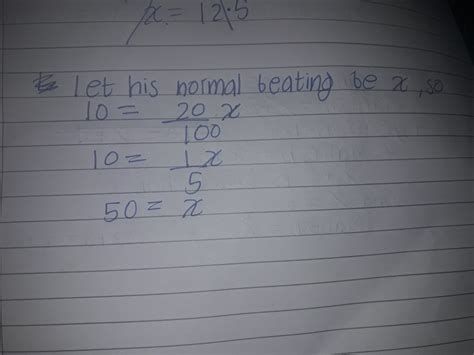 x = 12.5
let his normal beating be x, so
10 = 20/100 x
10 = 1/5 x
50 = x